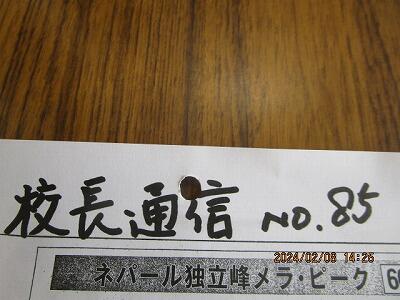 校長通信 NO.85
2024/02/08 14:25
ネパール独立峰メラ・ピーク